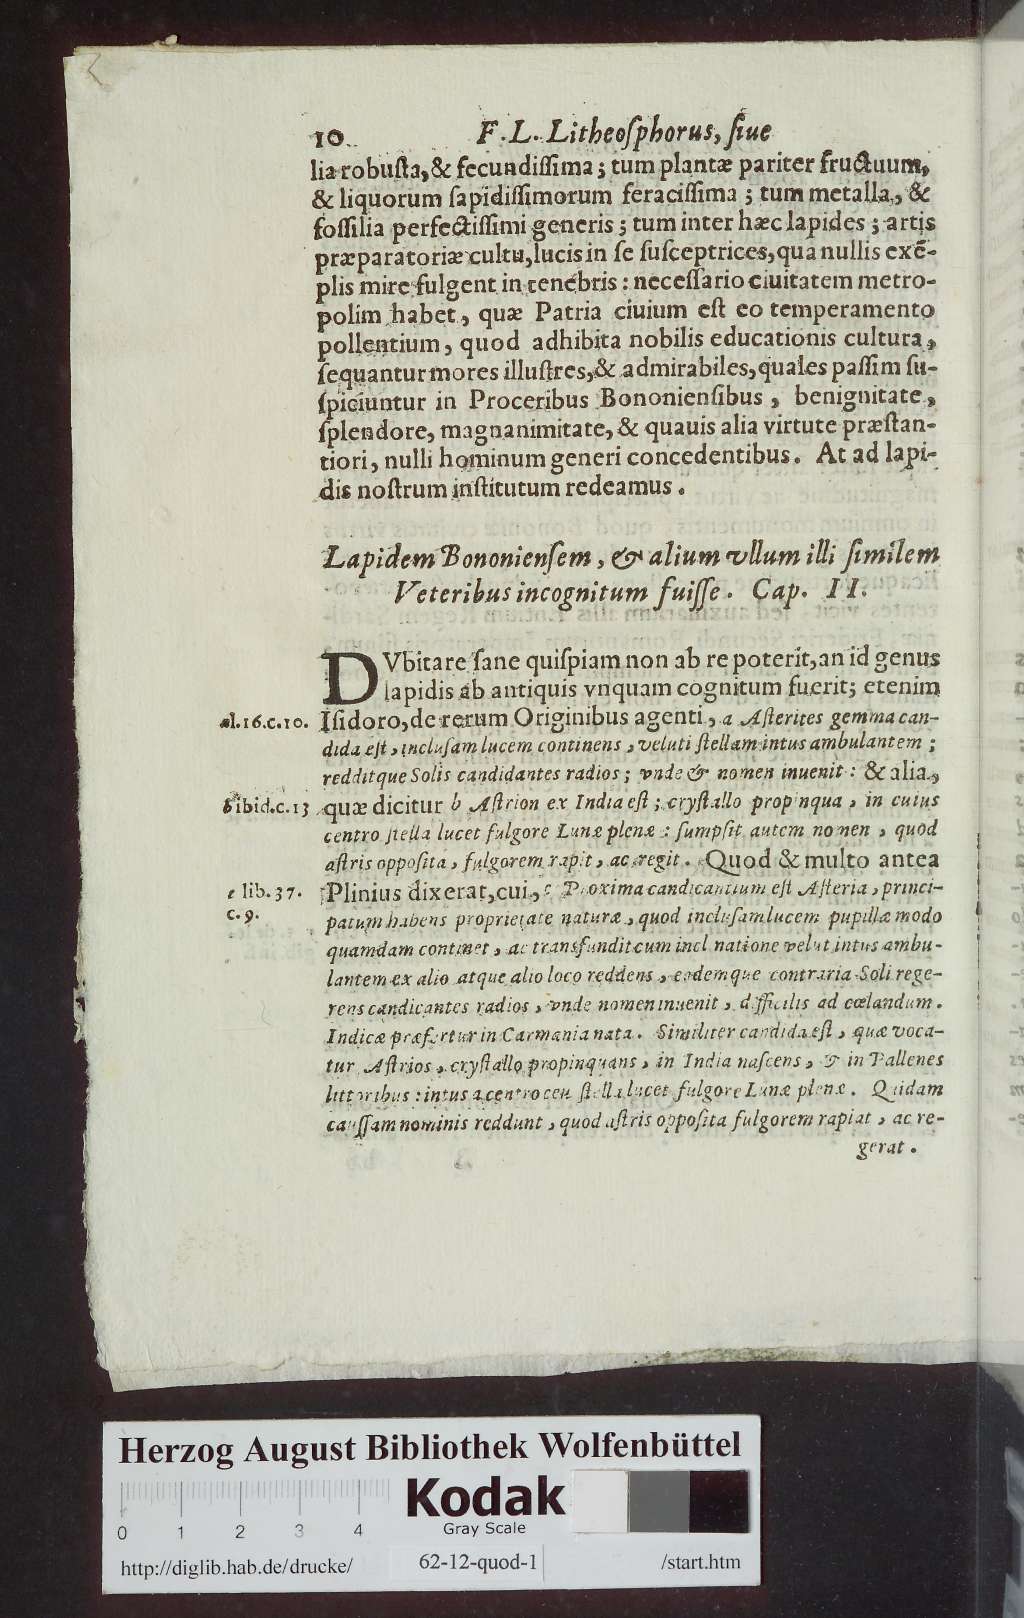 10 F. L. Litheoſphorus, ſiue
lia robuſta, & fecundiſſima; tum plantæ pariter fructuum,
& liquorum ſapidiſſimorum feraciſſima; tum metalla, &
foſſilia perfectiſſimi generis; tum inter hæc lapides; artis
præparatoriæ cultu, lucis in ſe ſuſceptrices, qua nullis exē-
plis mire fulgent in tenebris: neceſſario ciuitatem metro-
polim habet, quæ Patria ciuium eſt eo temperamento
pollentium, quod adhibita nobilis educationis cultura,
ſequantur mores illuſtres, & admirabiles, quales paſſim ſu-
ſpiciuntur in Proceribus Bononienſibus, benignitate,
ſplendore, magnanimitate, & quauis alia virtute præſtan-
tiori, nulli hominum generi concedentibus. At ad lapi-
dis noſtrum inſtitutum redeamus.
Lapidem Bononienſem, & alium vllum illi ſimilem
Veteribus incognitum fuiſſe. Cap. II.
DVbitare ſane quiſpiam non ab re poterit, an id genus
lapidis ab antiquis vnquam cognitum fuerit; etenim
a l. 16. c. 10. Iſidoro, de rerum Originibus agenti, a Aſterites gemma can-
dida eſt, incluſam lucem continens, veluti ſtellam intus ambulantem;
redditque Solis candidantes radios; vnde & nomen inuenit: & alia,
b ibid. c. 13 quæ dicitur b Aſtrion ex India eſt; cryſtallo propinqua, in cuius
centro ſtella lucet fulgore Lunæ plenæ: ſumpſit autem nomen, quod
aſtris oppoſita, fulgorem rapit, ac regit. Quod & multo antea
c lib. 37. Plinius dixerat, cui, c Proxima candicantium eſt Aſteria, princi-
c. 9. patum habens proprietate naturæ, quod incluſam lucem pupillæ modo
quamdam continet, ac transfundit cum inclinatione velut intus ambu-
lantem ex alio atque alio loco reddens, eademque contraria Soli rege-
rens candicantes radios, vnde nomen inuenit, difficilis ad cœlandum.
Indicæ præfertur in Carmania nata. Similiter candida eſt, quæ voca-
tur Aſtrios, cryſtallo propinquans, in India naſcens, & in Pallenes
littoribus: intus a centro ceu ſtella lucet fulgore Lunæ plenæ. Quidam
cauſſam nominis reddunt, quod aſtris oppoſita fulgorem rapiat, ac re-
gerat.
Herzog August Bibliothek Wolfenbüttel
Kodak
Gray Scale
0 1 2 3 4
http://diglib.hab.de/drucke/ 62-12-quod-1 /start.htm